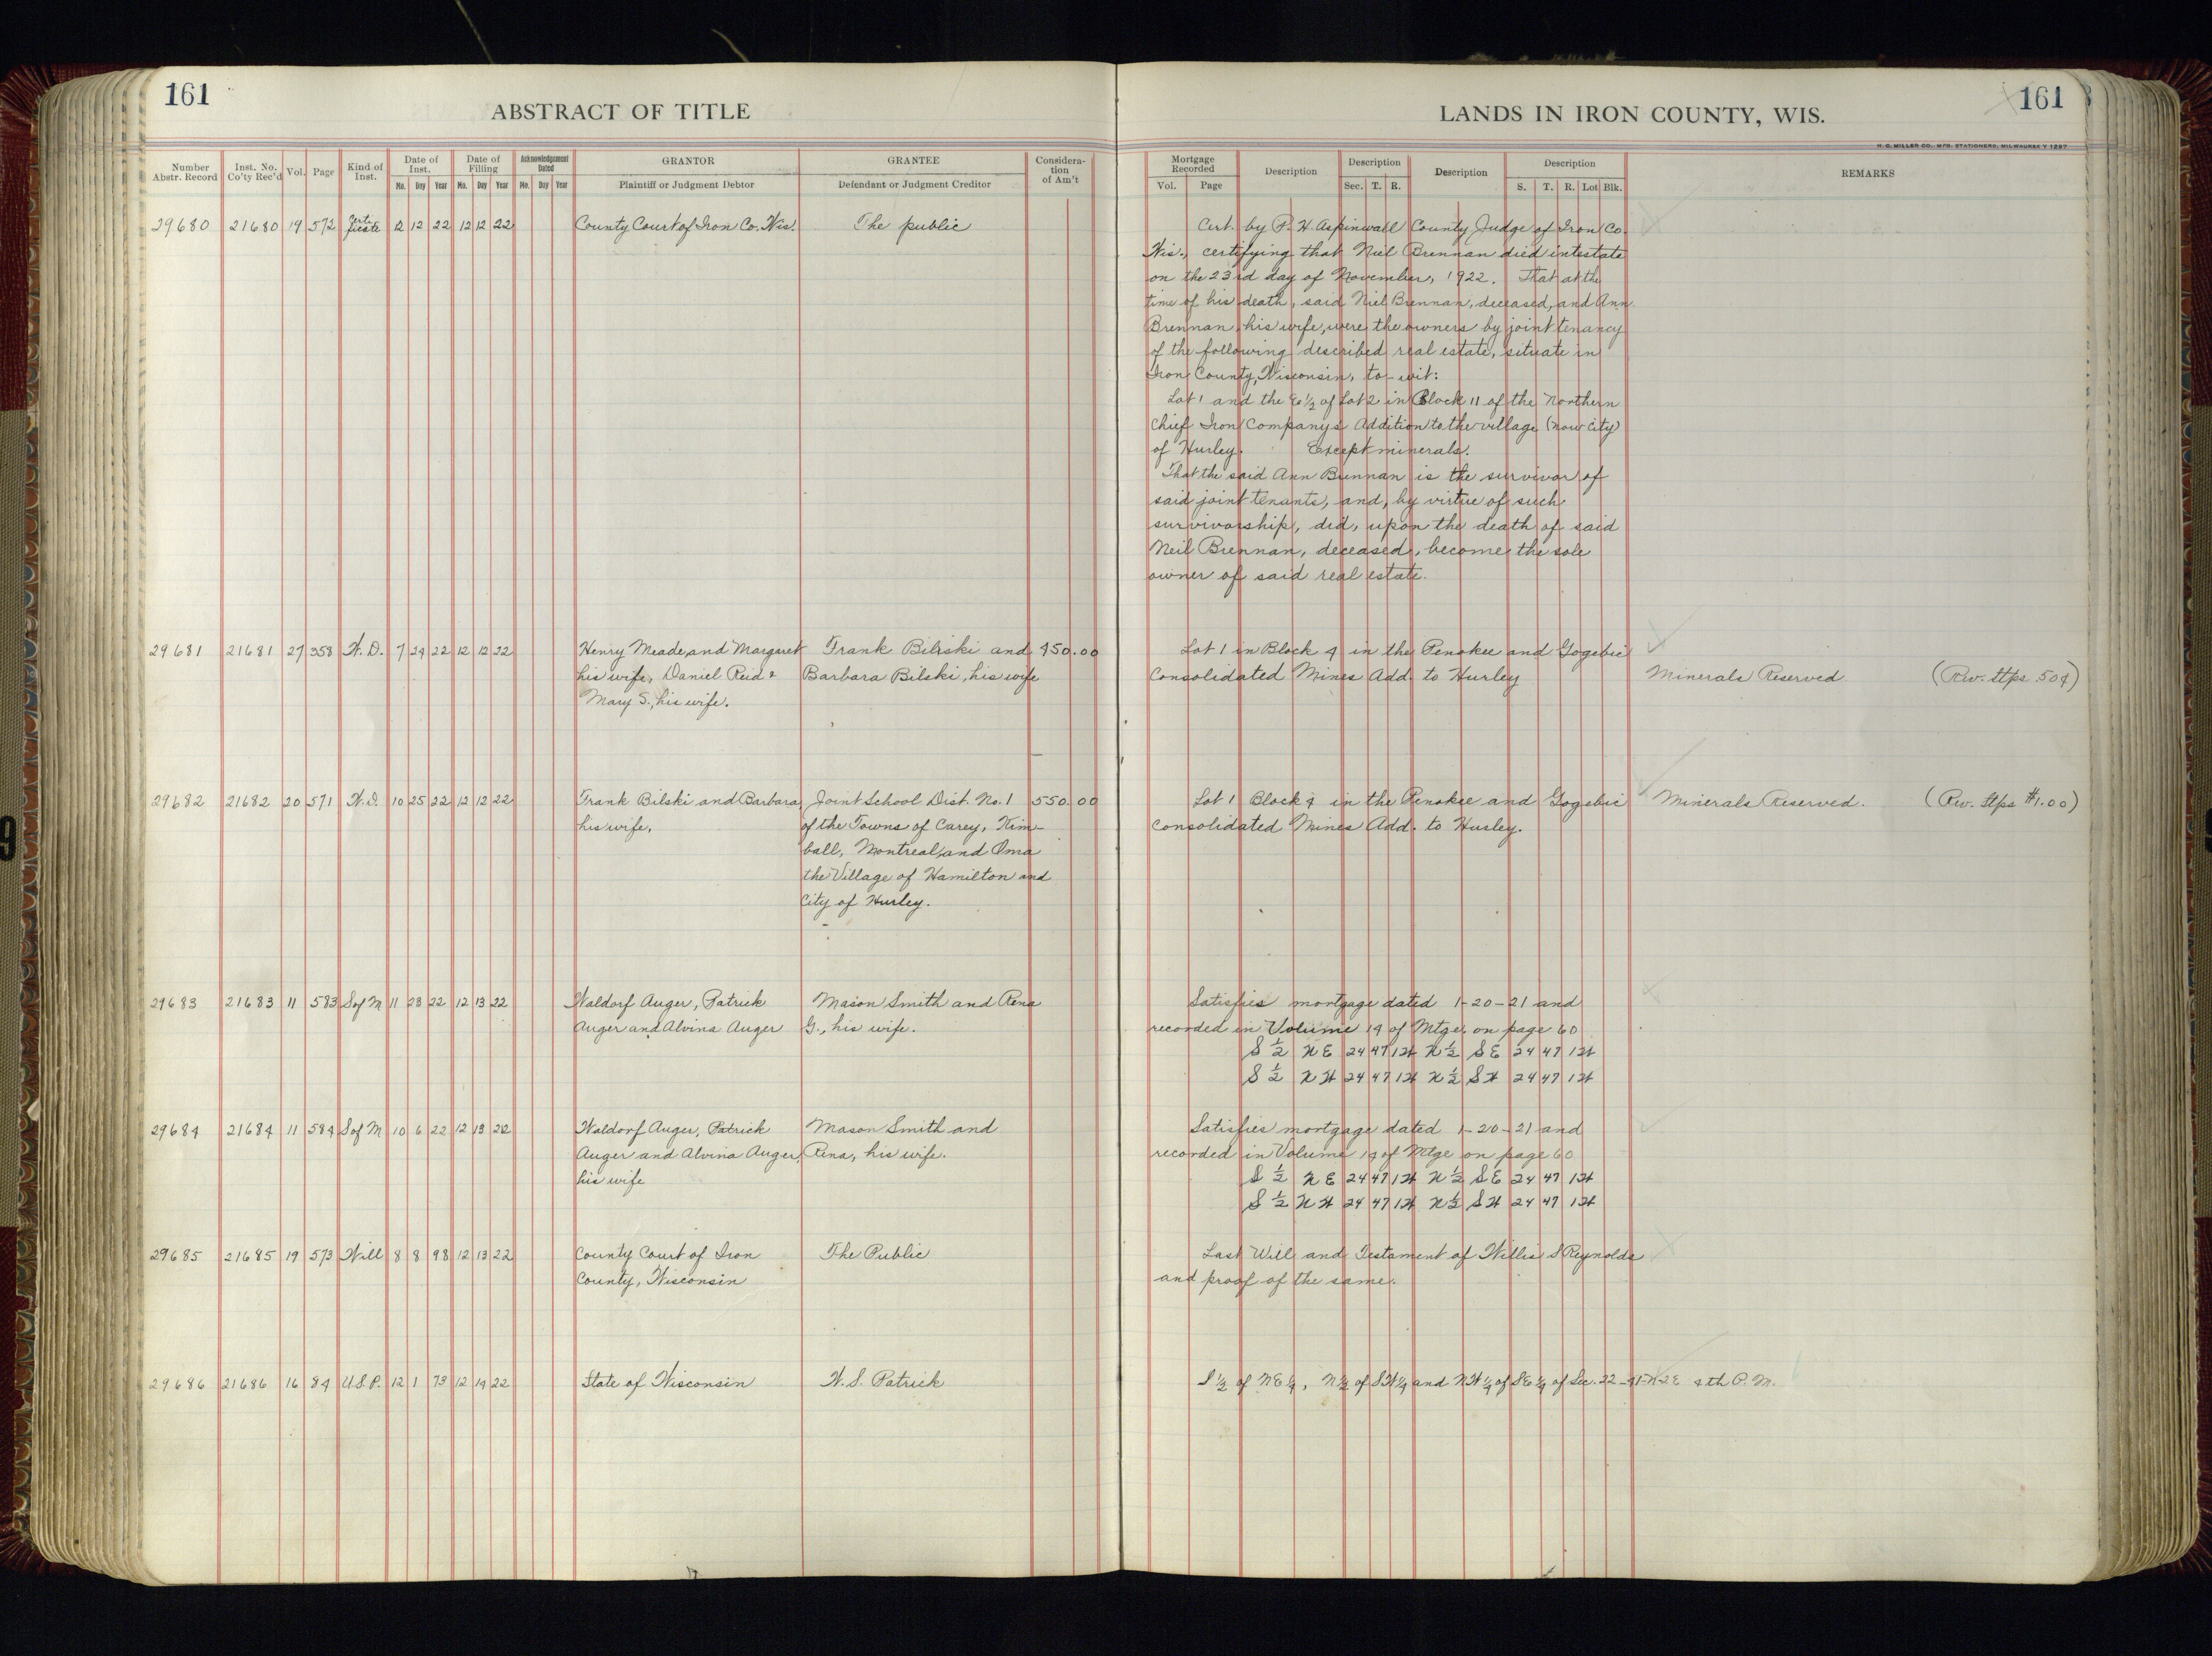 161
ABSTRACT OF TITLE
LANDS IN IRON COUNTY, WIS.
161
H. C. MILLER CO., MFG. STATIONERS, MILWAUKEE
Number Abstr. Record | Inst. No. Co'ty Rec'd | Vol. | Page | Kind of Inst. | Date of Inst. Mo. Day Year | Date of Filling Mo. Day Year | Acknowledgement Dated Mo. Day Year | GRANTOR Plaintiff or Judgment Debtor | GRANTEE Defendant or Judgment Creditor | Consideration of Am't
Mortgage Recorded Vol. Page | Description | Description Sec. T. R. | Description | Description S. T. R. Lot Blk. | REMARKS
29680 21680 19 572 Certificate 12 12 22 12 12 22 County Court of Iron Co. Wis. The public
Cert. by P. H. Aspinwall County Judge of Iron Co.
Wis., certifying that Niel Brennan died intestate
on the 23rd day of November, 1922. That at the
time of his death, said Niel Brennan, deceased, and Ann
Brennan, his wife, were the owners by joint tenancy
of the following described real estate, situate in
Iron County, Wisconsin, to-wit:
Lot 1 and the E 1/2 of Lot 2 in Block 11 of the Northern
Chief Iron Companys Addition to the village (now city)
of Hurley. Except minerals.
That the said Ann Brennan is the survivor of
said joint tenants, and, by virtue of such
survivorship, did, upon the death of said
Neil Brennan, deceased, become the sole
owner of said real estate.
29681 21681 27 358 W.D. 7 24 22 12 12 22 Henry Meade and Margaret Frank Bilski and 450.00 Lot 1 in Block 4 in the Penokee and Gogebic
his wife, Daniel Reid & Barbara Bilski, his wife Consolidated Mines Add. to Hurley Minerals Reserved (Rev. Stps .50¢)
Mary S., his wife.
29682 21682 20 571 W.D. 10 25 22 12 12 22 Frank Bilski and Barbara, Joint School Dist. No. 1 550.00 Lot 1 Block 4 in the Penokee and Gogebic Minerals Reserved. (Rev. Stps $1.00)
his wife, of the Towns of Carey, Kim- Consolidated Mines Add. to Hurley.
ball, Montreal, and Oma
the Village of Hamilton and
City of Hurley.
29683 21683 11 583 S of M 11 28 22 12 13 22 Waldorf Auger, Patrick Mason Smith and Rena Satisfies mortgage dated 1-20-21 and
Auger and Alvina Auger G., his wife. recorded in Volume 14 of Mtge. on page 60
S 1/2 NE 24 47 1W N 1/2 SE 24 47 1W
S 1/2 NW 24 47 1W N 1/2 SW 24 47 1W
29684 21684 11 584 S of M 10 6 22 12 13 22 Waldorf Auger, Patrick Mason Smith and Satisfies mortgage dated 1-20-21 and
Auger and Alvina Auger, Rina, his wife. recorded in Volume 14 of Mtge on page 60
his wife S 1/2 NE 24 47 1W N 1/2 SE 24 47 1W
S 1/2 NW 24 47 1W N 1/2 SW 24 47 1W
29685 21685 19 573 Will 8 8 98 12 13 22 County Court of Iron The Public Last Will and Testament of Willis S Reynolds
County, Wisconsin and proof of the same.
29686 21686 16 84 U.S.P. 12 1 73 12 14 22 State of Wisconsin W. S. Patrick S 1/2 of NE 1/4, N 1/2 of SW 1/4 and NW 1/4 of SE 1/4 of Sec. 22-41-N-2E 4th P. M.